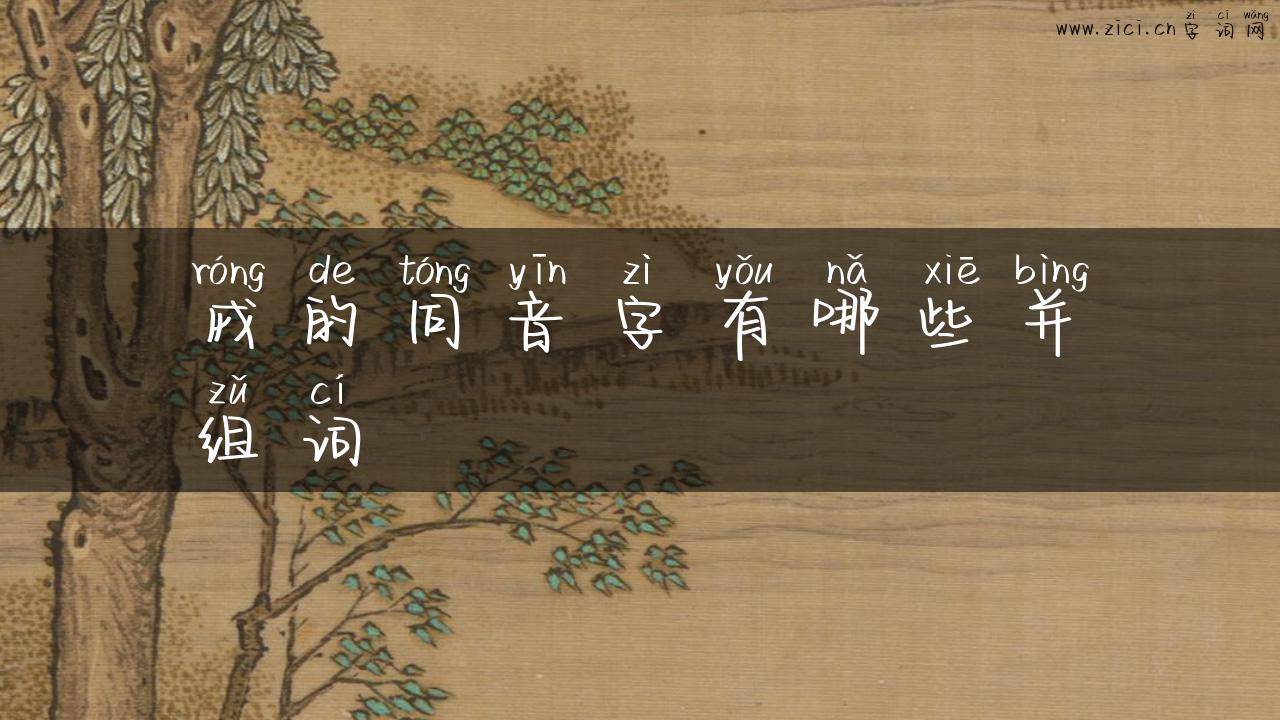 zì cí wǎng
www.zici.cn 字词网
róng de tóng yīn zì yǒu nǎ xiē bìng
戎的同音字有哪些并
zǔ cí
组词